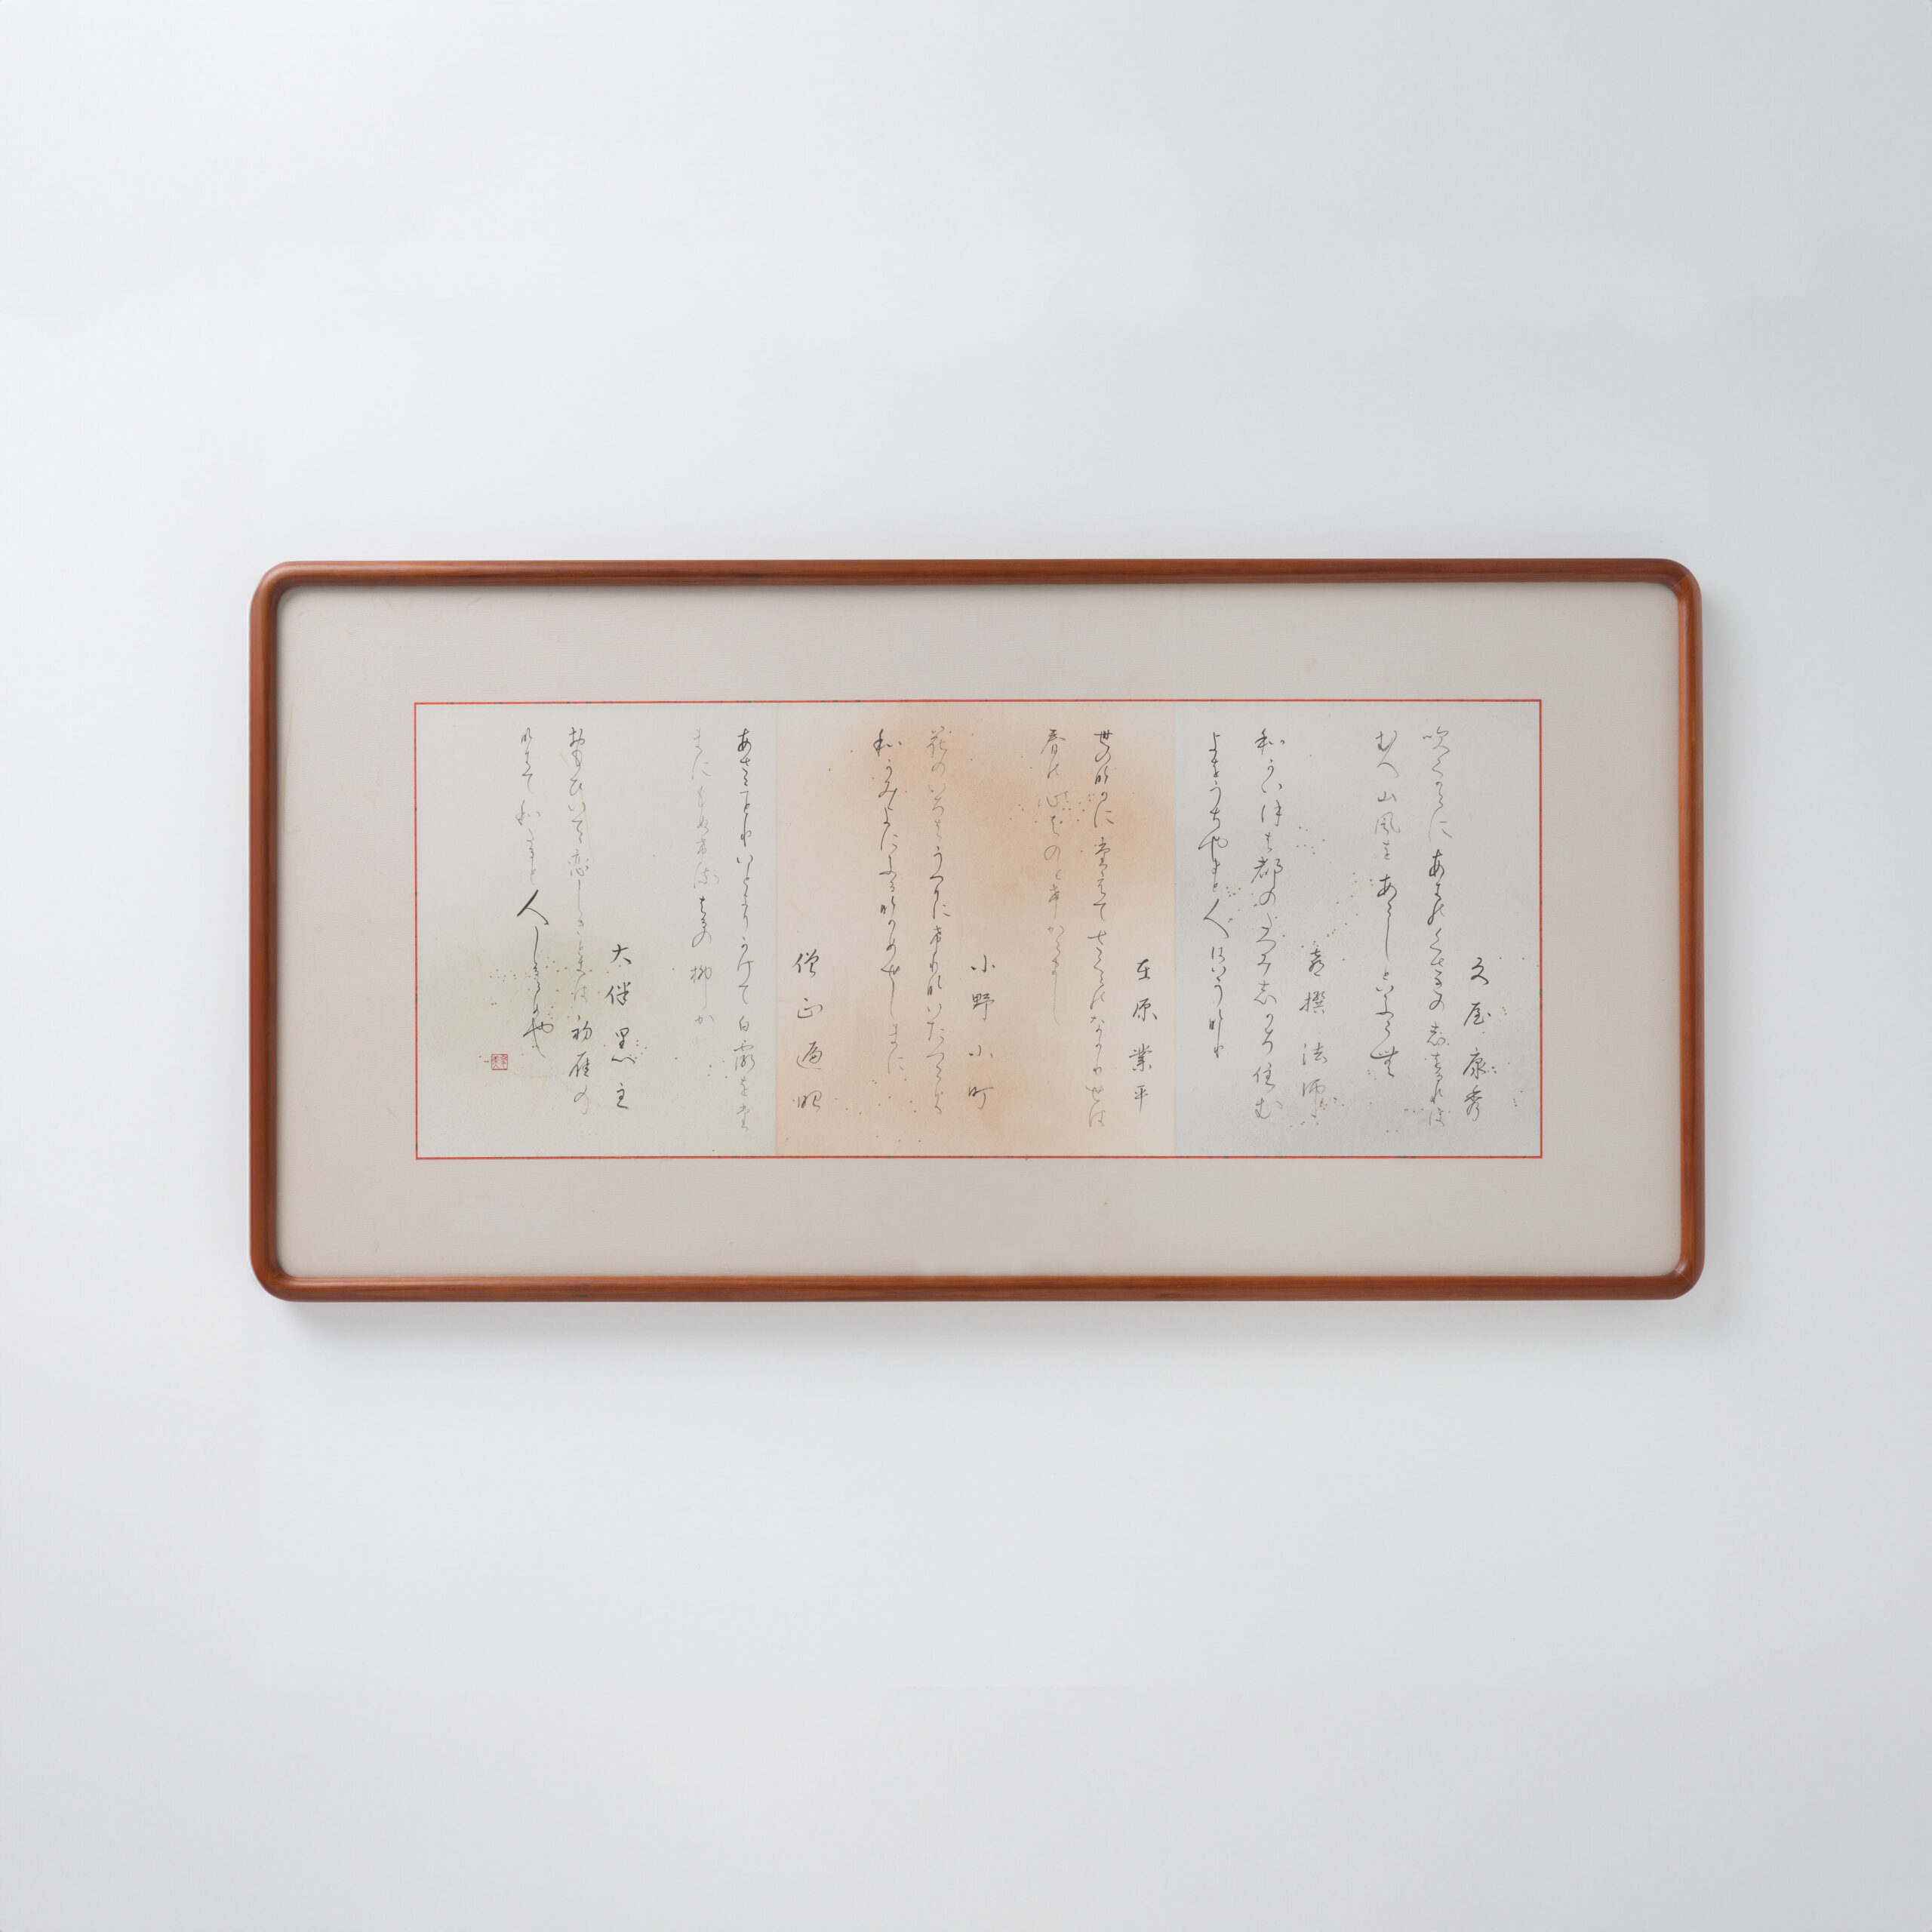 文屋康秀
吹くからにあきのくさきの志をるれは
むへ山風をあらしといふらむ
喜撰法師
和かいほは都のたつみ志かそ住む
よをうちやまと人はいふなり
在原業平
世の中にたえてさくらのなかりせは
春の心はのとけからまし
小野小町
花のいろはうつりにけりないたつらに
和かみよにふるなかめせしまに
僧正遍昭
あさみとりいとよりかけて白露を
たまにもぬけるはるの柳か
大伴黒主
おもひいてて恋しきときは初雁の
なきて和たると人しるらめや